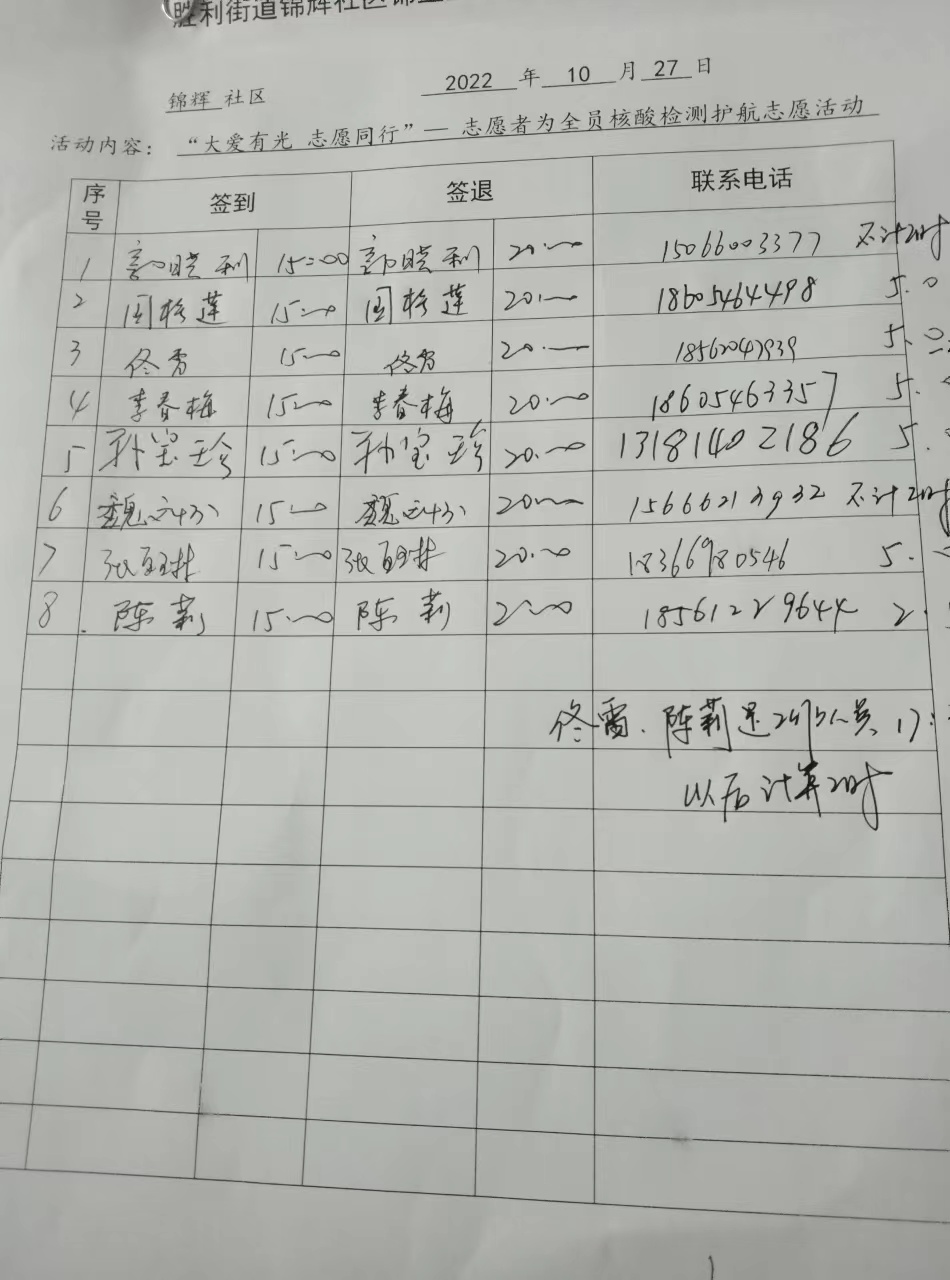 胜利街道锦辉社区锦
锦辉 社区 2022 年 10 月 27 日
活动内容： “大爱有光 志愿同行”— 志愿者为全员核酸检测护航志愿活动
序号 签到 签退 联系电话
1 郭晓利 15:00 郭晓利 20:00 15066003377 不计时
2 周格莲 15:00 周格莲 20:00 18605464498 5.0
3 佟雷 15:00 佟雷 20:00 18562043939 5.0
4 李春梅 15:00 李春梅 20:00 18605463357 5.
5 孙宝珍 15:00 孙宝珍 20:00 13181402186 5.
6 魏 15:00 魏 20:00 15666213932 不计时
7 张 15:00 张 20:00 18366980546 5.
8 陈莉 15:00 陈莉 20:00 18561229644 2
佟雷、陈莉是 人员, 17:
以后计算时